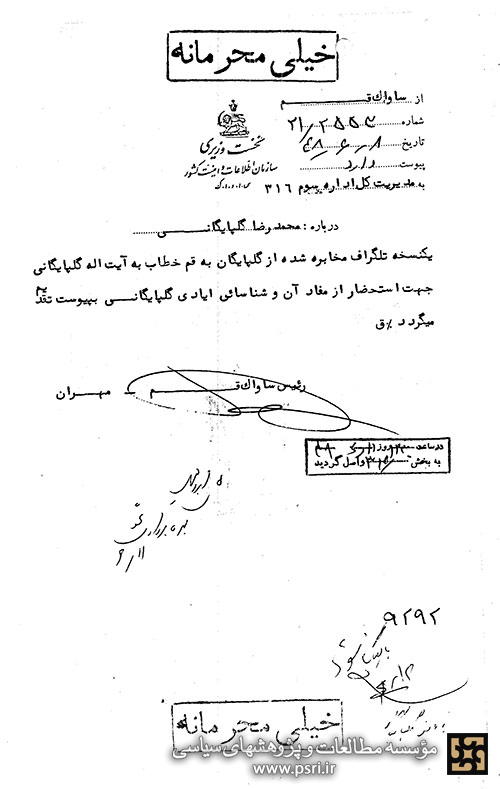 خیلی محرمانه
از ساواک قم
شماره ۲۱/۲۵۵۳
تاریخ ۴۸/۶/۸
پیوست دارد
نخست وزیری
سازمان اطلاعات و امنیت کشور
س.ا.و.ا.ک
به مدیریت کل اداره سوم ۳۱۶
درباره : محمدرضا گلپایگانی
یکنسخه تلگراف مخابره شده از گلپایگان به قم خطاب به آیت اله گلپایگانی
جهت استحضار از مفاد آن و شناسائی ایادی گلپایگانی بپیوست تقدیم
میگردد
رئیس ساواک قم – مهران
در ساعت روز
به بخش ۳۱۶ واصل گردید
بهره برداری
۶/۱۱
۹۲۹۲
بایگانی شود
۶/۱۲
خیلی محرمانه
مؤسسه مطالعات و پژوهشهای سیاسی
www.psri.ir